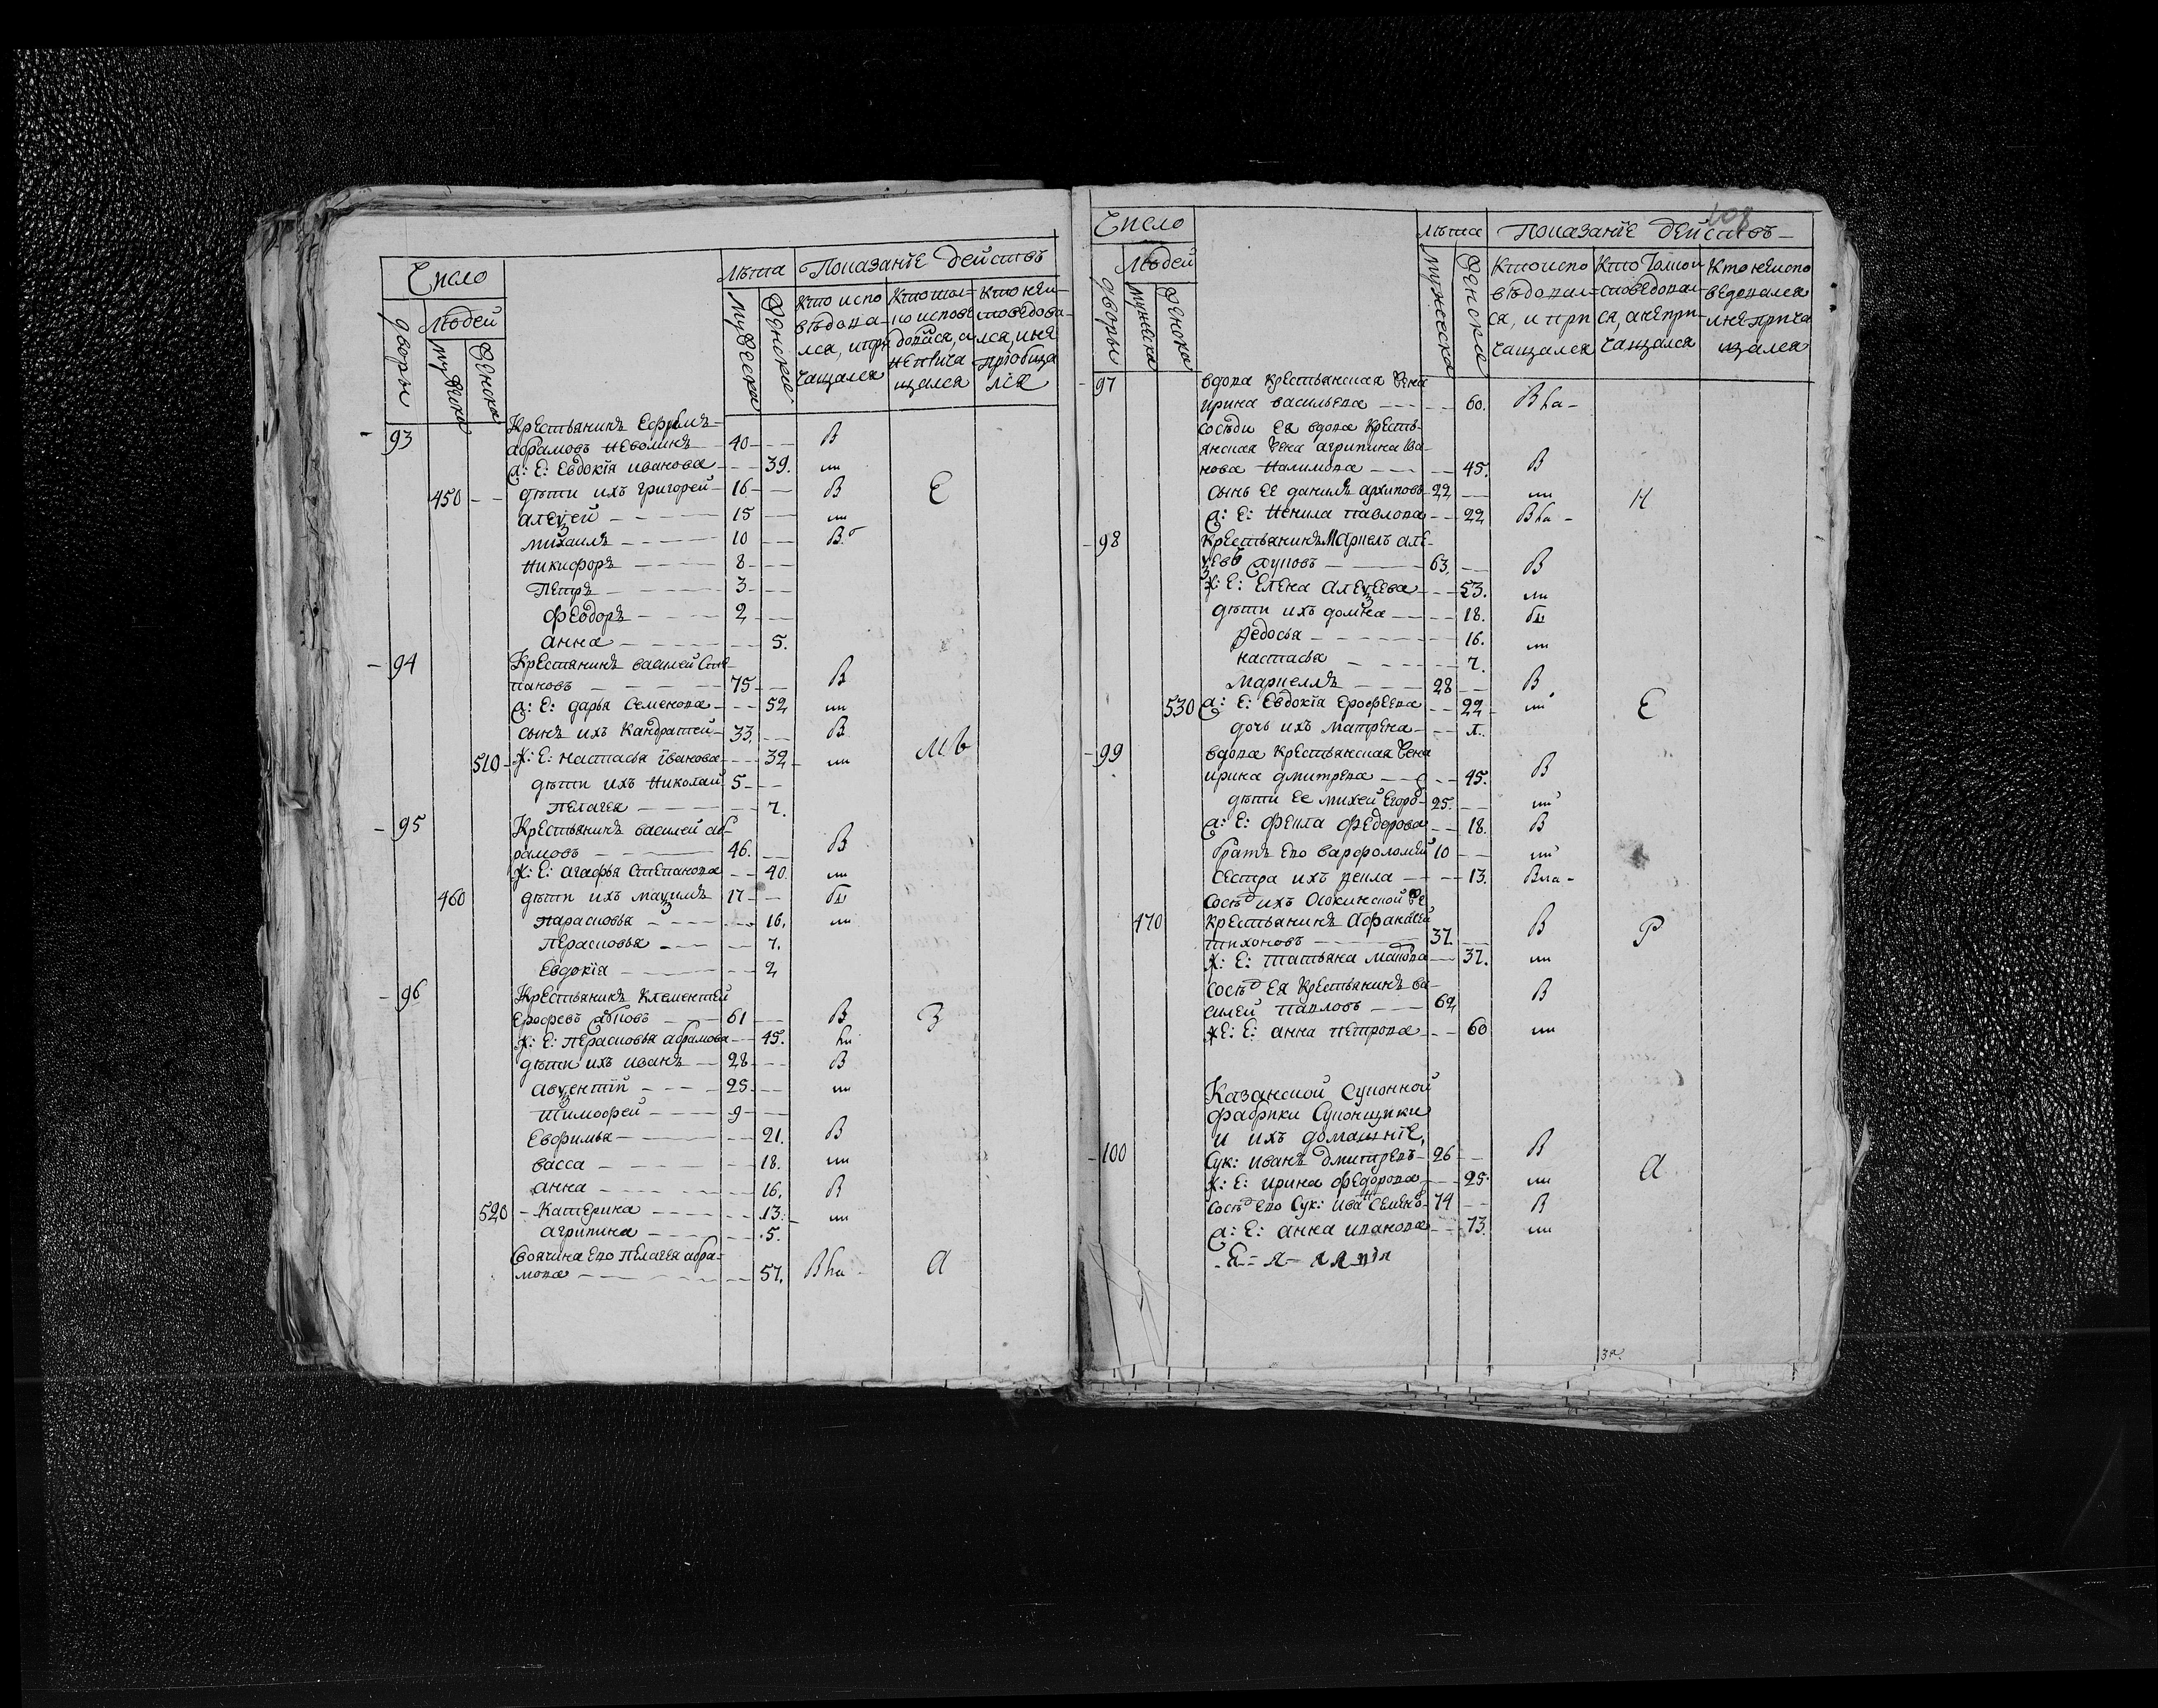 Число
Людей
дворы
мужеска
женска
Лѣта
мужеска
женска
Показанїе действъ
Кто испо
вѣдова-
лся, и при
чащался
Кто тол-
ко испове
довался, а
не прича
щался
Кто неи-
споведова-
лся, и не
приобща
лся
93
Крестьянинъ Ефимъ
абрамовъ Неволинъ 40 В
ж: Е: Евдокїа иванова 39. ни
450 дѣти ихъ григорей 16 В Е
алеѯей 15 ни
михаилъ 10 В
Никифоръ 8
Петръ 3
Феодоръ 2
анна 5.
94
Крестянинъ василей Сте-
пановъ 75 В
ж: Е: дарья Семенова 52 ни
сынъ ихъ Кандратей 33. В
510 ж: Е: настасья їванова 32 ни
дѣти ихъ Николай 5
Пелагея 7.
95
Крестьянинъ василей аб-
рамовъ 46. В
ж: Е: агафья Степанова 40. ни
460 дѣти ихъ маѯимъ 17
парасковья 16. ни
Перасковья 7.
Евдокїа 2
96
Крестьянинъ Клементей
Ерофеевъ 61 В З
ж: Е: Перасковья абрамова 45.
дѣти ихъ иванъ 28 В
авѯентїй 25 ни
тимофей 9
Евфимья 21. В
васса 18. ни
анна 16. В
520 Катерина 13. ни
агрипина 5.
Своячина Ево Пелагея абра-
мова 57. В на А
108
Число
Людей
дворы
мужеска
женска
Лѣта
мужеска
женска
Показанїе действъ
Кто испо
вѣдовал-
ся, и при
чащался
Кто Толкои
споведовал-
ся, а непри-
чащался
Кто неиспо
ведовался
и неприча
щался
97
вдова крестьянская жена
ирина васильева 60. В на
сосѣди ея вдова кресть-
янская жена агрипина ива-
нова Налимова 45. В
сынъ ее данилъ архиповъ 22 ни Н
ж: Е: Ненила павлова 22 В на
98
крестьянинъ Маркелъ але-
ѯевъ 63. В
ж: Е: Елена алеѯеева 53. ни
дѣти ихъ домна 18.
ѳедосья 16. ни
настасья 7.
Маркеллъ 28 В
530 ж: Е: Евдокїа Ерофеева 22 ни Е
дочь ихъ матрена
99
вдова крестьянская жена
ирина дмитрева 45. В
дѣти ее михей Егоро 25. ни
ж: Е: Фекла Федорова 18. В
братъ Ево варфоломей 10 ни
сестра ихъ ѳекла 13. В на
сосѣд ихъ Осокинской же
470 крестьянинъ Афанасей
тихоновъ 37. В Р
ж: Е: татьяна 37. ни
сосѣд ея крестьянинъ ва-
силей павловъ 62 В
ж: Е: анна петрова 60 ни
Казанской Суконной
фабрики Суконщики
и ихъ домашнїе,
100 Сук: иванъ дмитревъ 26 В А
ж: Е: ирина федорова 25. ни
сосѣд Ево Сук: иван Семено 74 В
ж: Е: анна иванова 73. ни